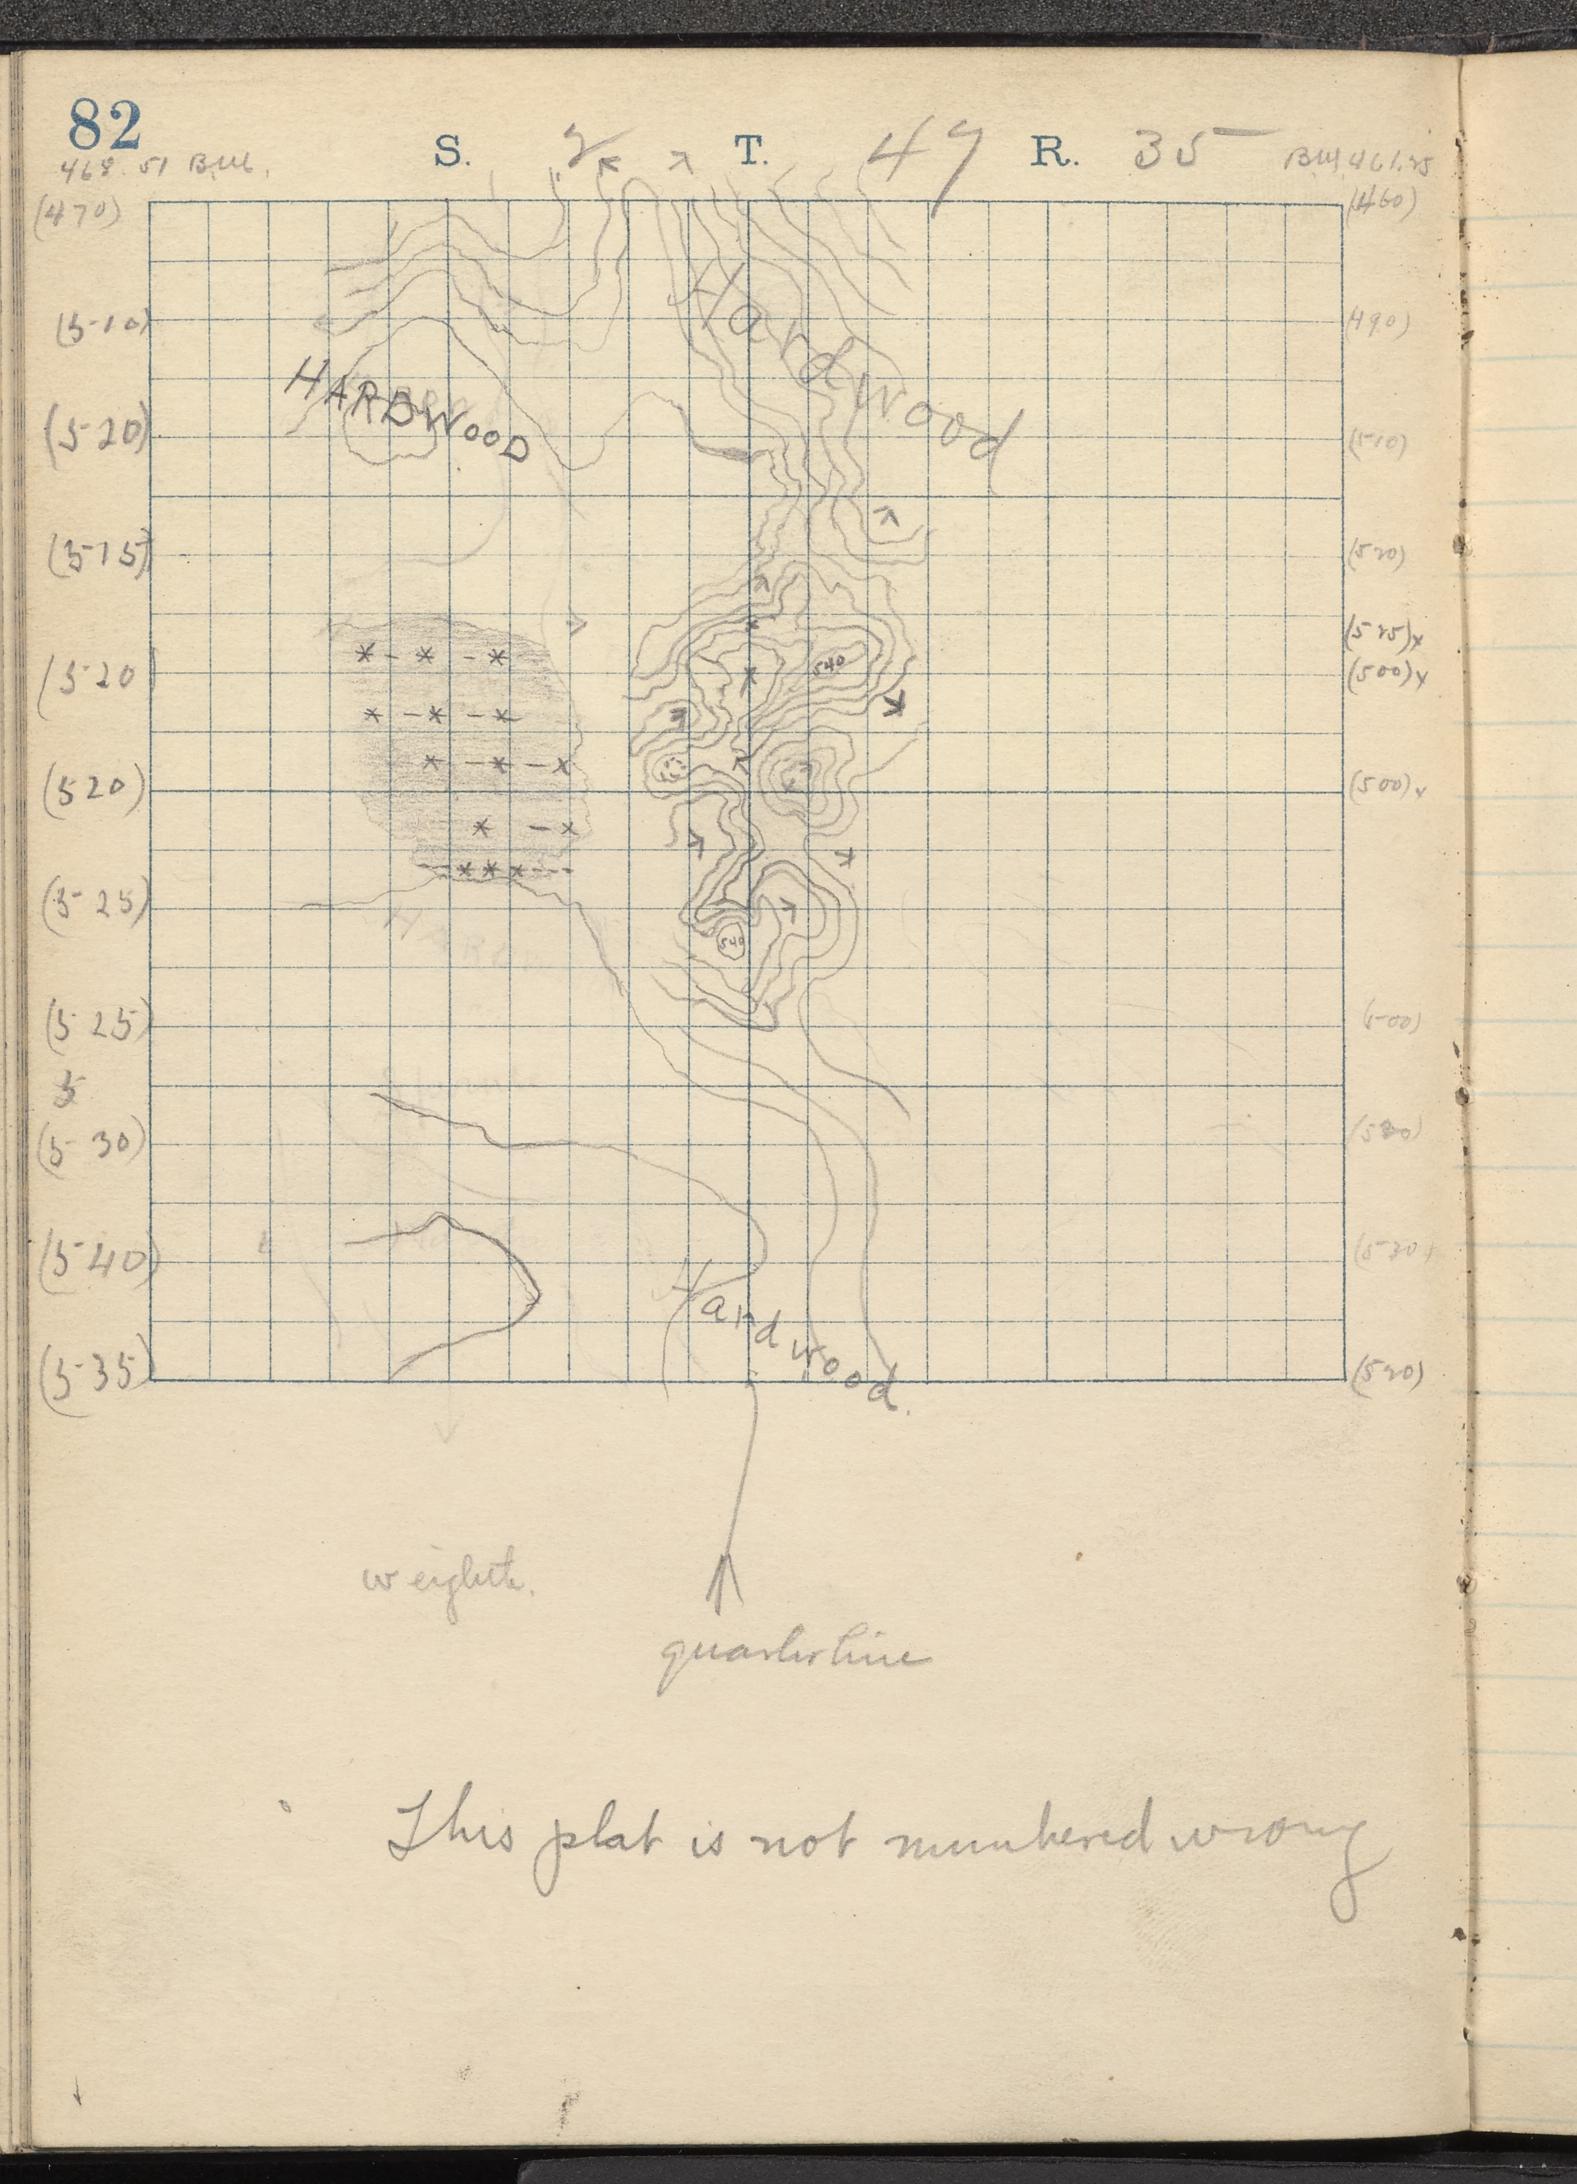 82
S. 2 T. 47 R. 35
468.51 B.M. B.M. 461.25
(470) (460)
(510) (490)
Hardwood
HARDWOOD
(520) (510)
(515) (520)
(525)x
(520) 540 (500)x
(520) (500)x
(525)
540
(525) (500)
5
(530)
(540)
Hardwood.
(535) (520)
weighth.
quarterline
This plat is not numbered wrong